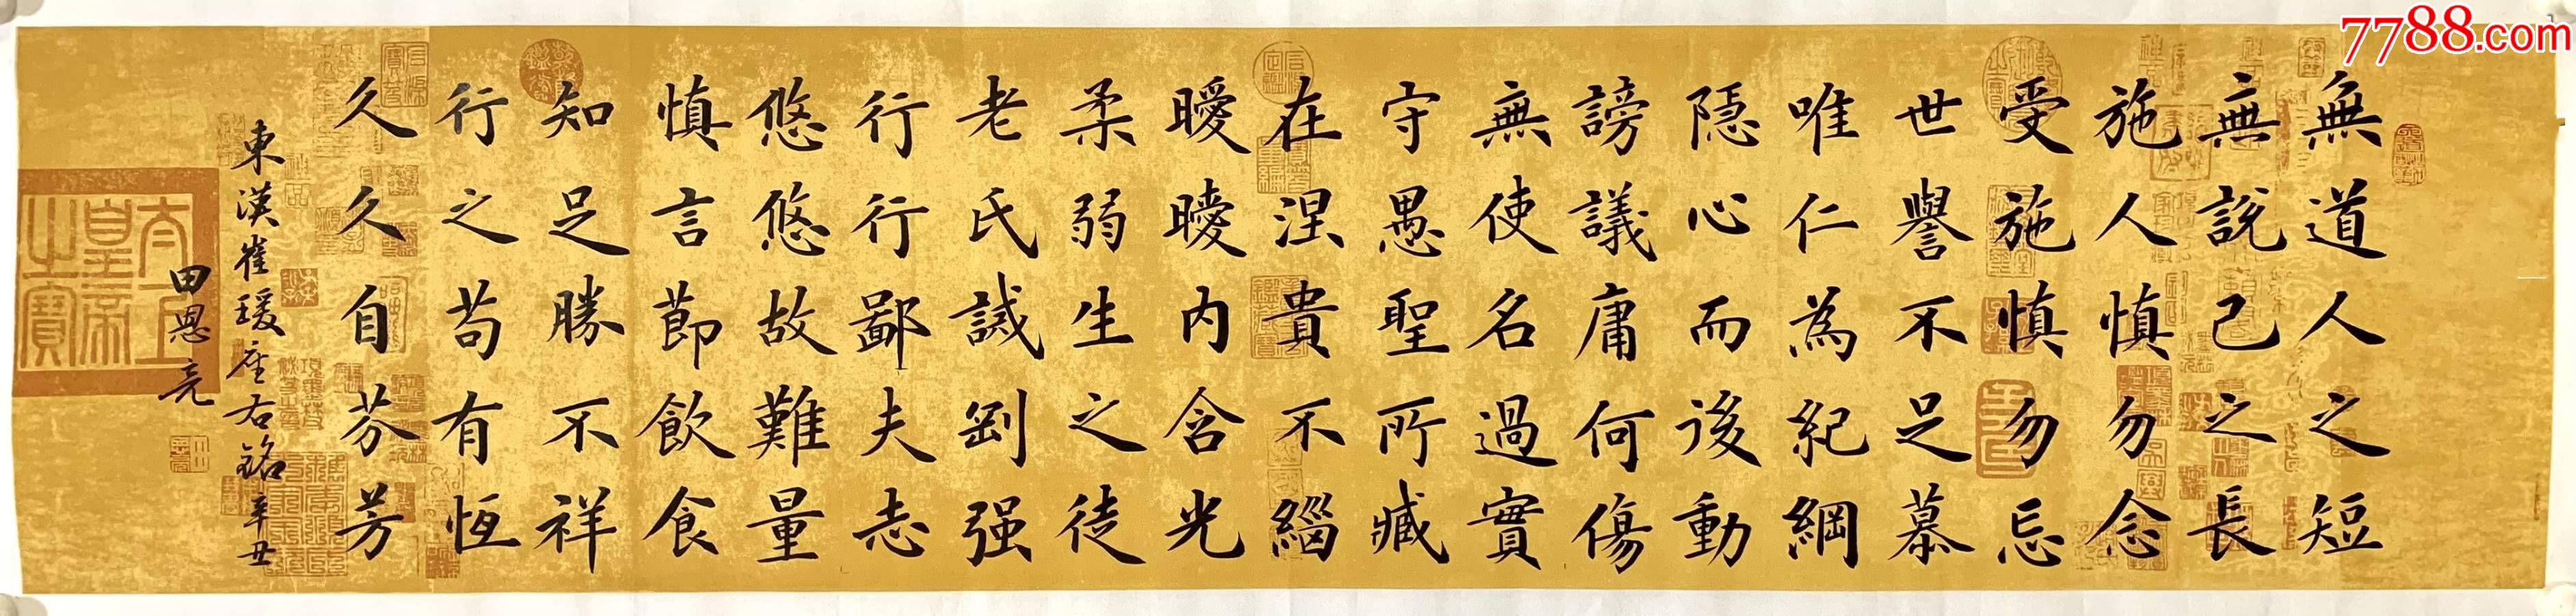 7788.com
無道人之短
無說己之長
施人慎勿念
受施慎勿忘
世譽不足慕
唯仁為紀綱
隐心而後動
謗議庸何傷
無使名過實
守愚聖所臧
在涅貴不緇
曖曖内含光
柔弱生之徒
老氏誡剛强
行行鄙夫志
悠悠故難量
慎言節飲食
知足勝不祥
行之苟有恆
久久自芬芳
東漢崔瑗座右銘辛丑
田恩亮
太上皇帝之寶